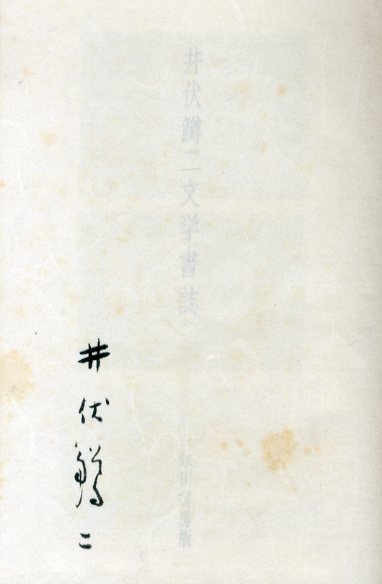 井伏鱒二文学書誌
井伏鱒二